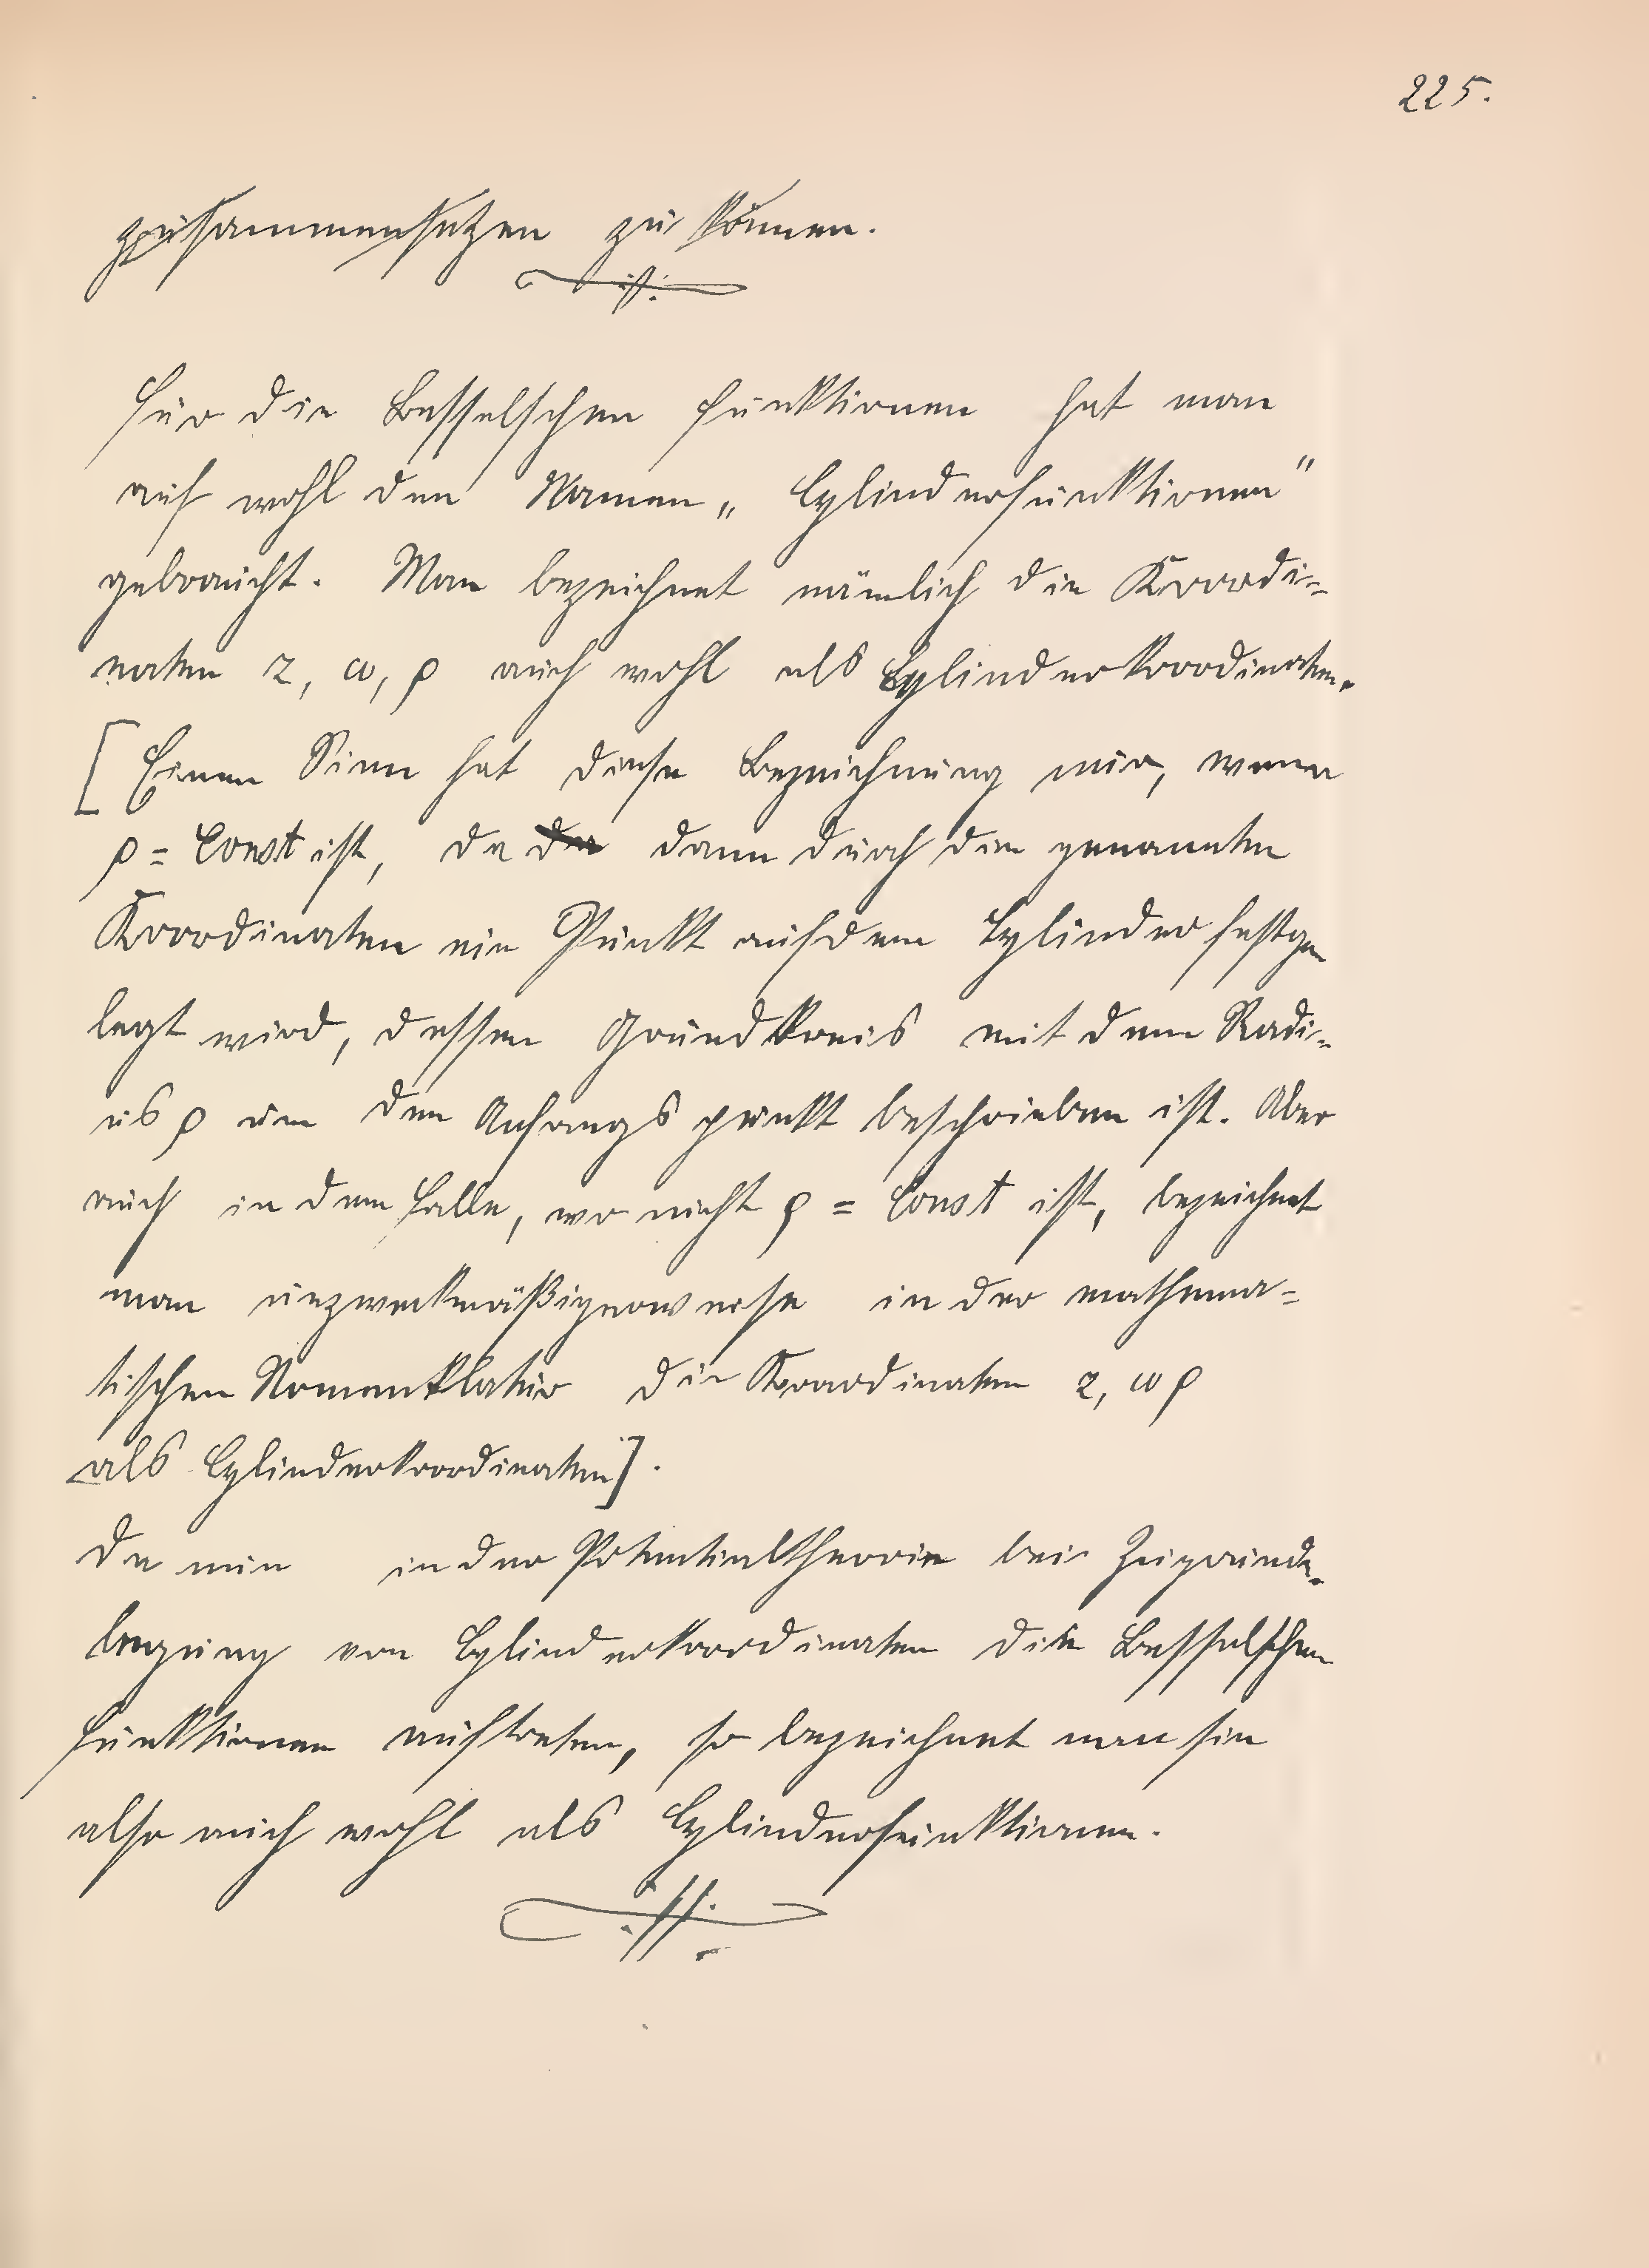 225.
zusammensetzen zu können.
Für die Besselschen Funktionen hat man
auch wohl den Namen „Cylinderfunktionen“
gebraucht. Man bezeichnet nämlich die Koordi-
naten z, ω, ρ auch wohl als Cylinderkoordinaten.
[Einen Sinn hat diese Bezeichnung nur, wenn
ρ = Const ist, da dann durch die genannten
Koordinaten ein Punkt auf dem Cylinder festge
legt wird, dessen Grundkreis mit dem Radi-
us ρ um den Anfangspunkt beschrieben ist. Aber
auch in dem Falle, wo nicht ρ = Const ist, bezeichnet
man unzweckmäßigerweise in der mathema=
tischen Nomenklatur die Koordinaten z, ω ρ
als Cylinderkoordinaten].
Da nun in der Potentialtheorie bei Zugrunde-
legung von Cylinderkoordinaten die Besselschen
Funktionen auftreten, so bezeichnet man sie
also auch wohl als Cylinderfunktionen.